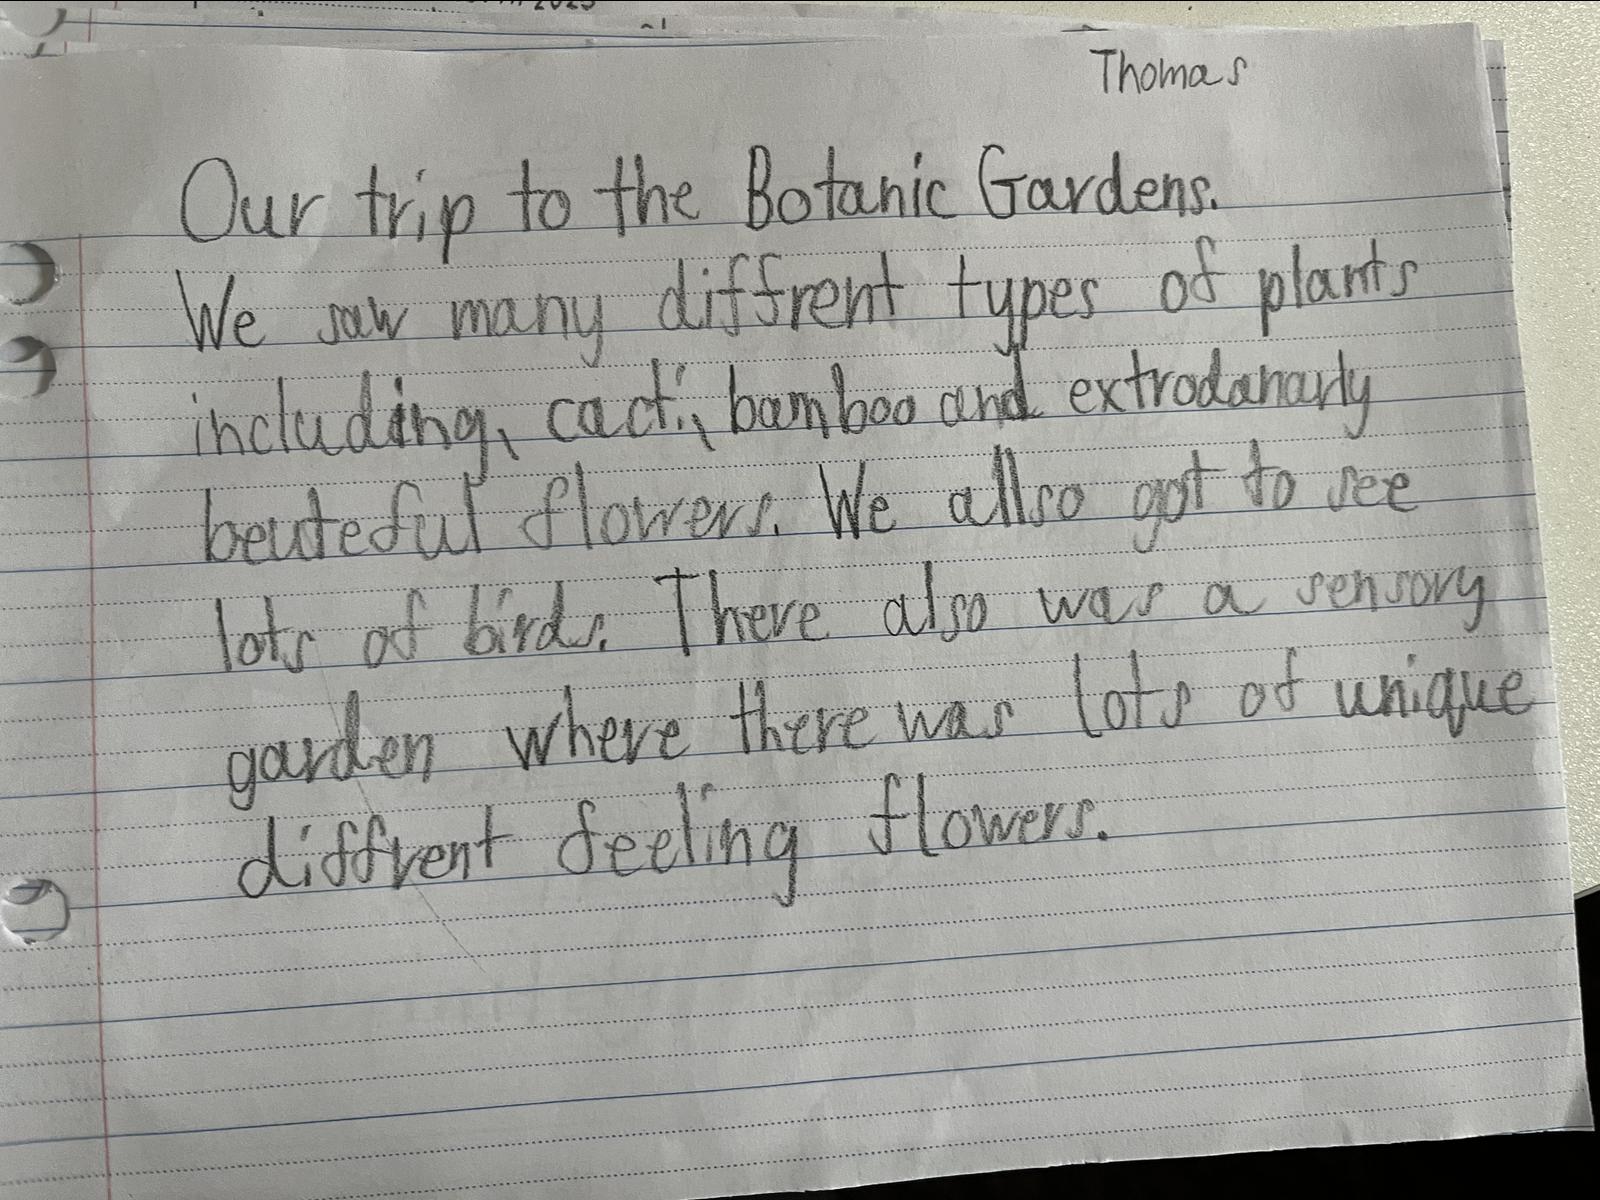 Thomas
Our trip to the Botanic Gardens.
We saw many diffrent types of plants
including, cacti, bamboo and extrodanarly
beuteful flowers. We allso got to see
lots of birds. There also was a sensory
garden where there was lots of unique
diffrent feeling flowers.